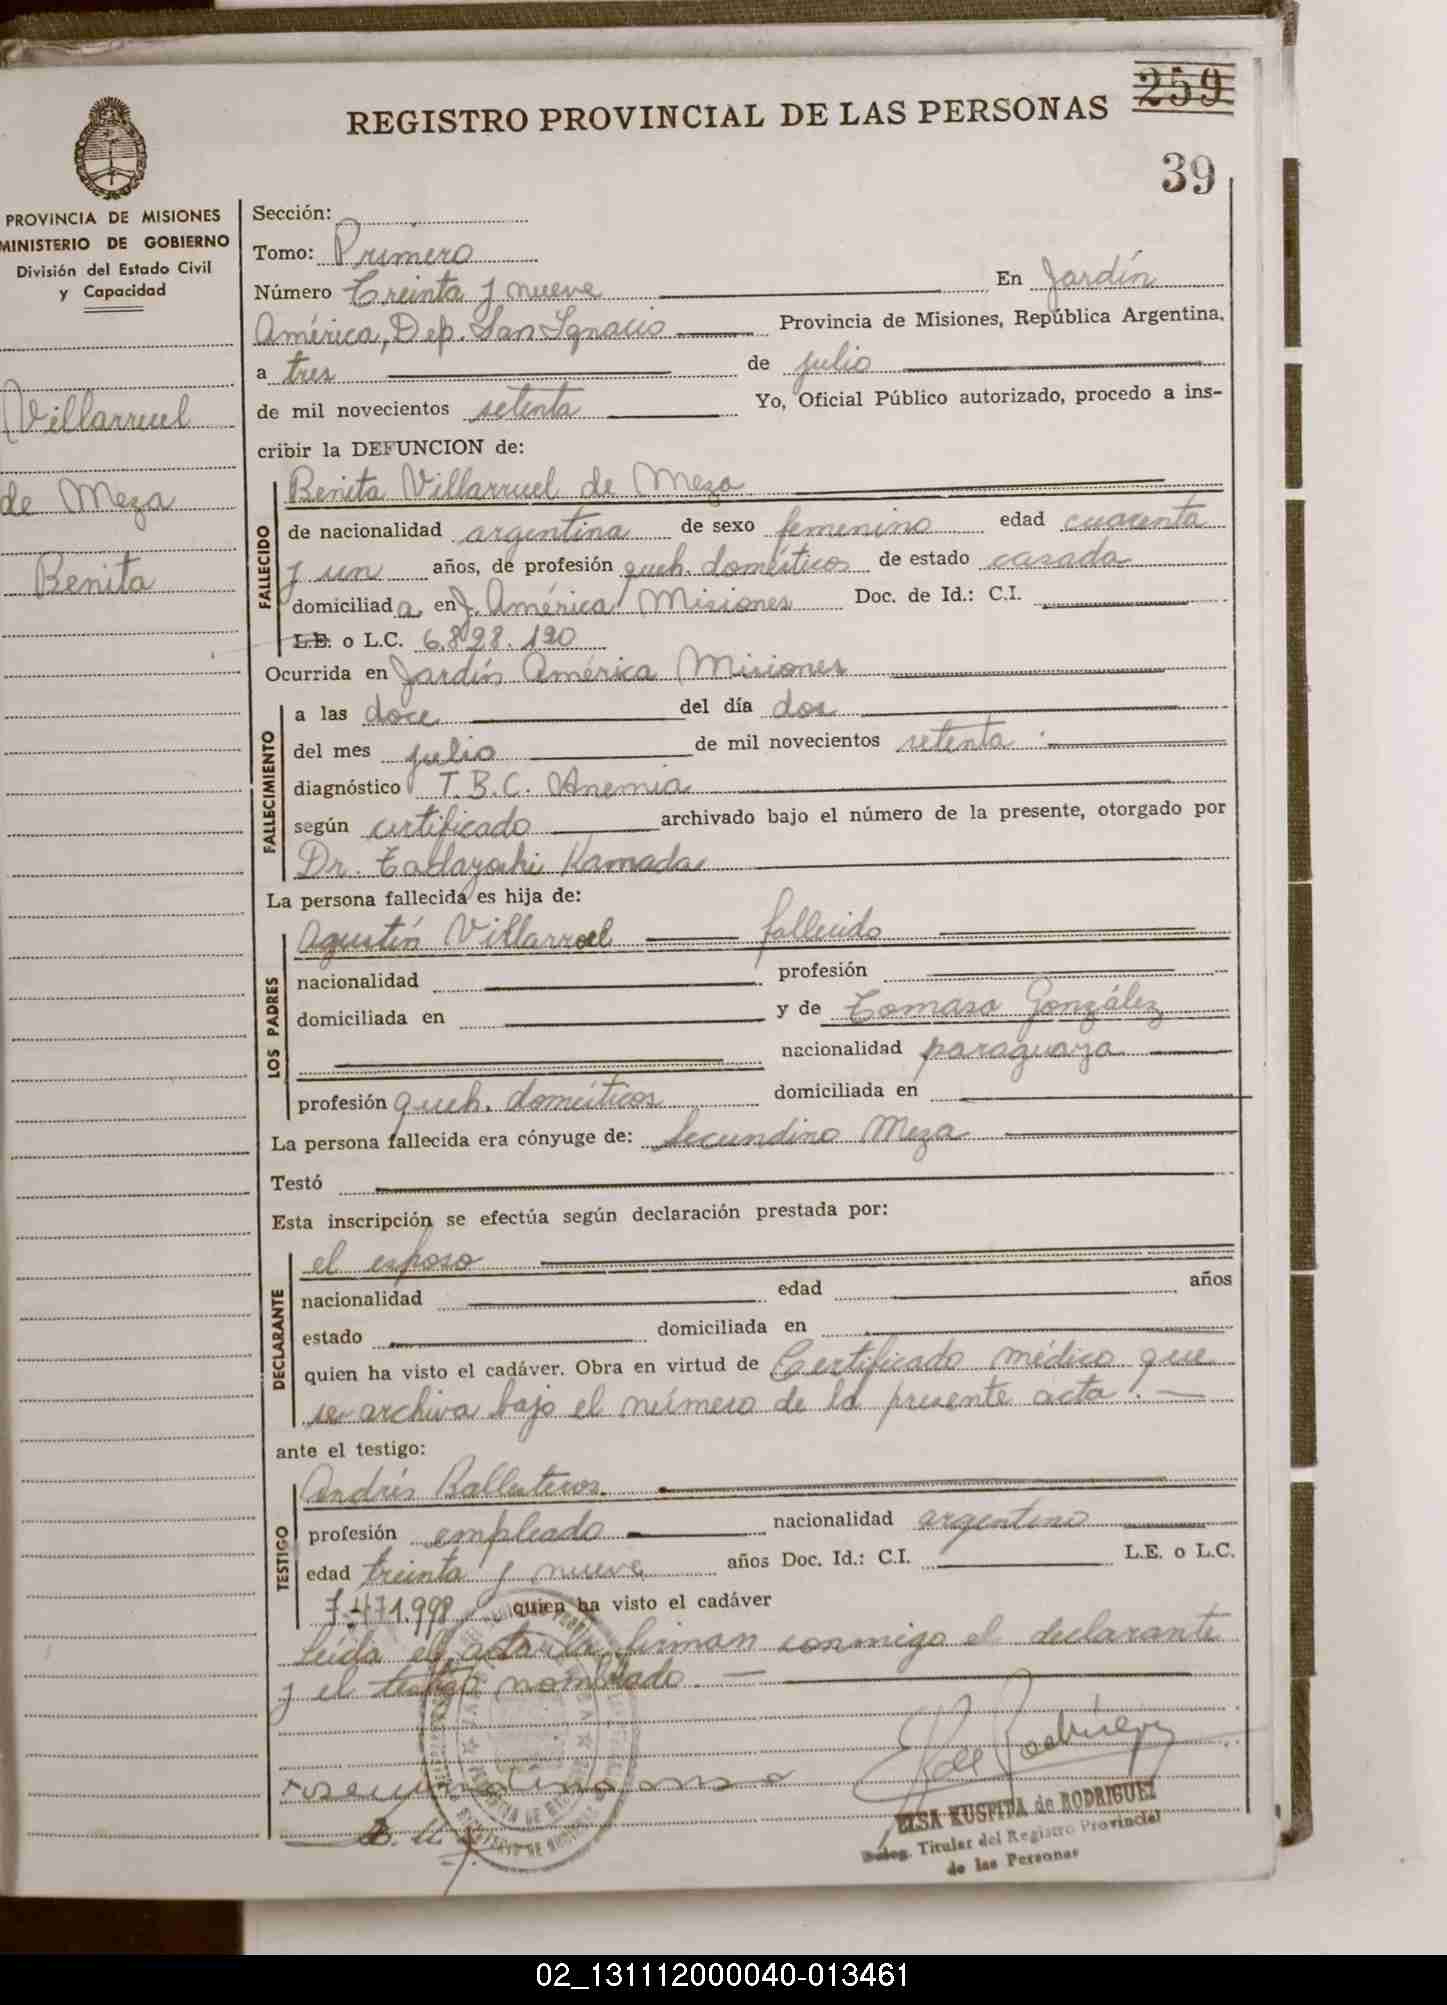 259
REGISTRO PROVINCIAL DE LAS PERSONAS
39
PROVINCIA DE MISIONES
MINISTERIO DE GOBIERNO
División del Estado Civil
y Capacidad
Villarruel
de Meza
Benita
Sección:
Tomo: Primero
Número Treinta y nueve En Jardín
América, Dep. San Ignacio Provincia de Misiones, República Argentina,
a tres de julio
de mil novecientos setenta Yo, Oficial Público autorizado, procedo a ins-
cribir la DEFUNCION de:
FALLECIDO
Benita Villarruel de Meza
de nacionalidad argentina de sexo femenino edad cuarenta
y un años, de profesión queh. domésticos de estado casada
domiciliada en J. América Misiones Doc. de Id.: C.I.
L.E. o L.C. 6.828.190
Ocurrida en Jardín América Misiones
FALLECIMIENTO
a las doce del día dos
del mes julio de mil novecientos setenta
diagnóstico T.B.C. Anemia
según certificado archivado bajo el número de la presente, otorgado por
Dr. Tadayoshi Kamada
La persona fallecida es hija de:
LOS PADRES
Agustín Villarruel fallecido
nacionalidad profesión
domiciliada en y de Tomasa González
nacionalidad paraguaya
profesión queh. domésticos domiciliada en
La persona fallecida era cónyuge de: Secundino Meza
Testó
Esta inscripción se efectúa según declaración prestada por:
DECLARANTE
el esposo
nacionalidad edad años
estado domiciliada en
quien ha visto el cadáver. Obra en virtud de Certificado médico que
se archiva bajo el número de la presente acta.
ante el testigo:
TESTIGO
Andrés Ballesteros.
profesión empleado nacionalidad argentino
edad treinta y nueve años Doc. Id.: C.I. L.E. o L.C.
7.471.998 quien ha visto el cadáver
Leída el acta la firman conmigo el declarante
y el testigo nombrado.
ELSA KUSPITA de RODRIGUEZ
Deleg. Titular del Registro Provincial
de las Personas
02_131112000040-013461